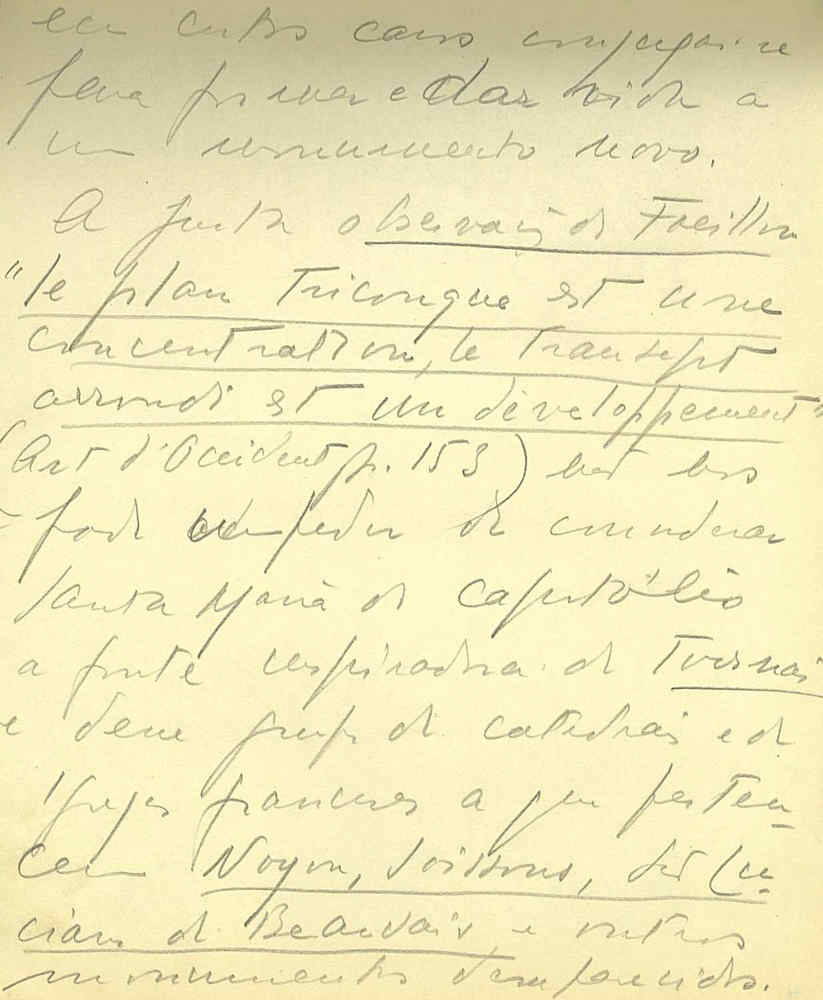 em certos casos conjugar-se
para formar e dar vida a
um monumento novo.
A justa observação de Focillon
"le plan Triconque est une
concentration, le Transept
arrondi est un développement"
(Art d'Occident p. 153) não nos
pode impedir de considerar
Santa Maria do Capitólio
a fonte inspiradora de Tournai
e desse grupo de catedrais e de
Igrejas francesas a que perten-
cem Noyon, Soissons, St Lu-
cian de Beauvais e outros
monumentos desaparecidos.